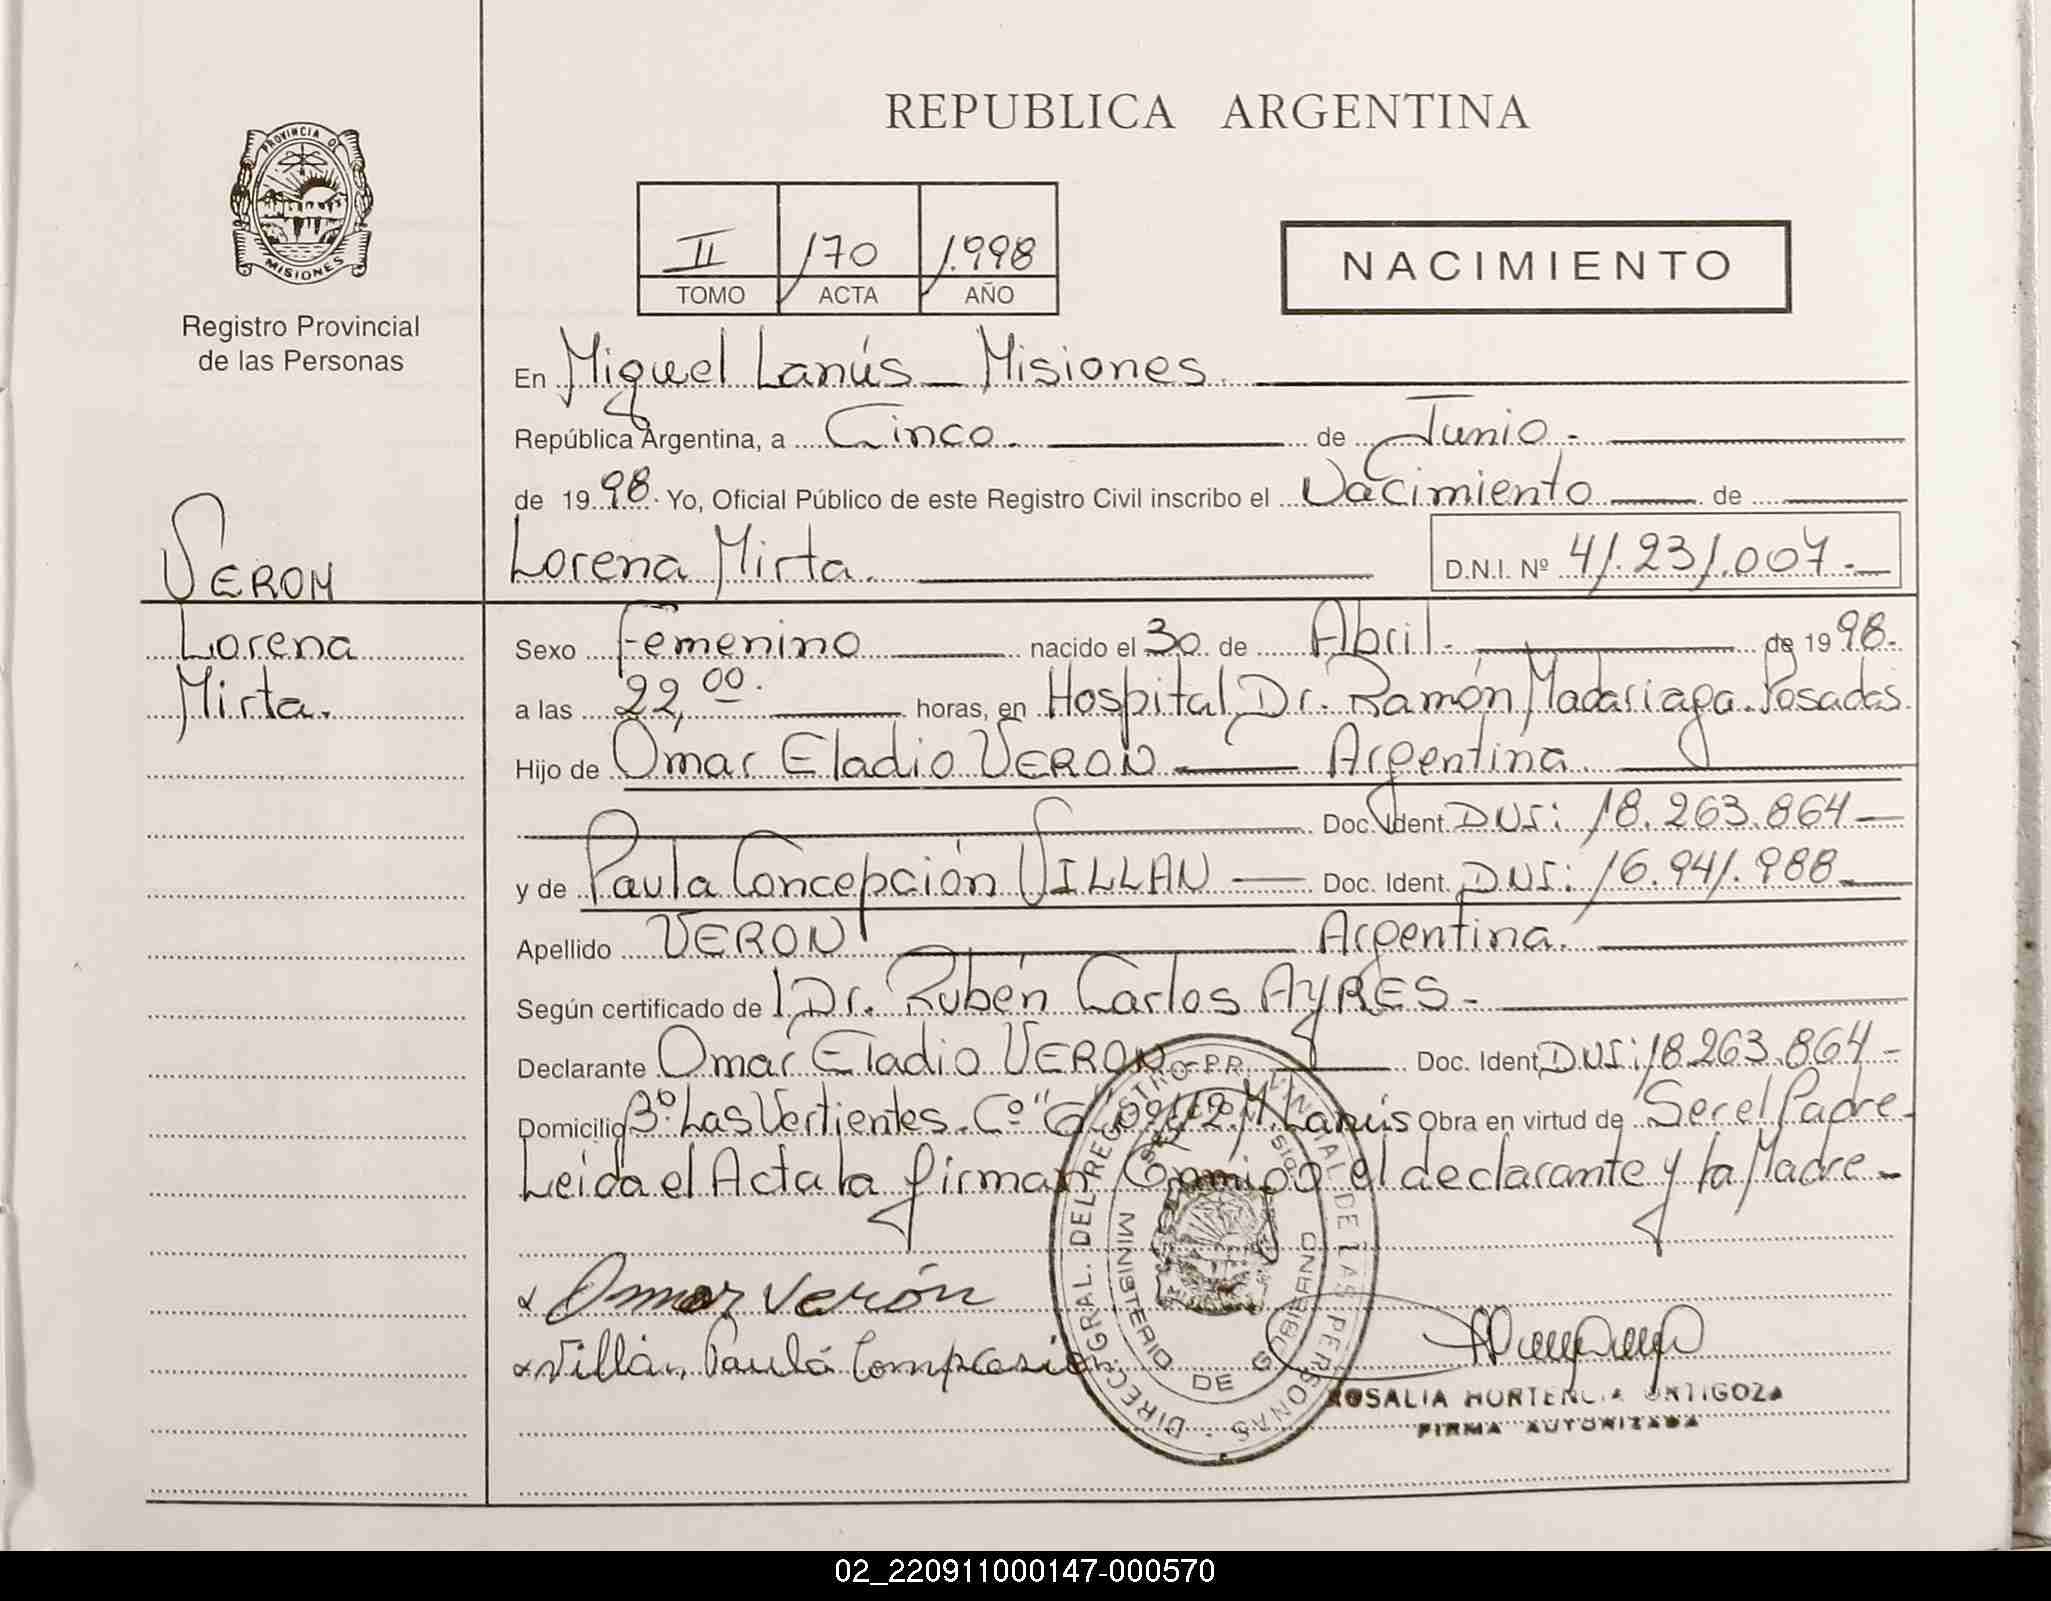 REPUBLICA ARGENTINA
PROVINCIA DE
MISIONES
Registro Provincial
de las Personas
II 170 1.998
TOMO ACTA AÑO
NACIMIENTO
En Miguel Lanús - Misiones.
República Argentina, a Cinco. de Junio.-
de 1998. Yo, Oficial Público de este Registro Civil inscribo el Nacimiento de
VERON
Lorena Mirta. D.N.I. Nº 41.231.007.-
Lorena
Mirta.
Sexo Femenino nacido el 30 de Abril. de 1998.-
a las 22,00. horas, en Hospital Dr. Ramón Madariaga. Posadas.
Hijo de Omar Eladio VERON Argentina.
Doc. Ident. DNI: 18.263.864-
y de Paula Concepción VILLAN Doc. Ident. DNI: 16.941.988-
Apellido VERON Argentina.
Según certificado del Dr. Rubén Carlos AYRES.-
Declarante Omar Eladio VERON Doc. Ident. DNI: 18.263.864-
Domicilio Bº Las Vertientes. Cº "G" M. Lanús Obra en virtud de Ser el Padre.
Leida el Acta la firman Conmigo el declarante y la Madre.-
Omar Verón
Villán Paula
DIREC. GRAL. DEL REGISTRO PROVINCIAL DE LAS PERSONAS
MINISTERIO DE GOBIERNO
ROSALIA HORTENCIA ORTIGOZA
FIRMA AUTORIZADA
02_220911000147-000570